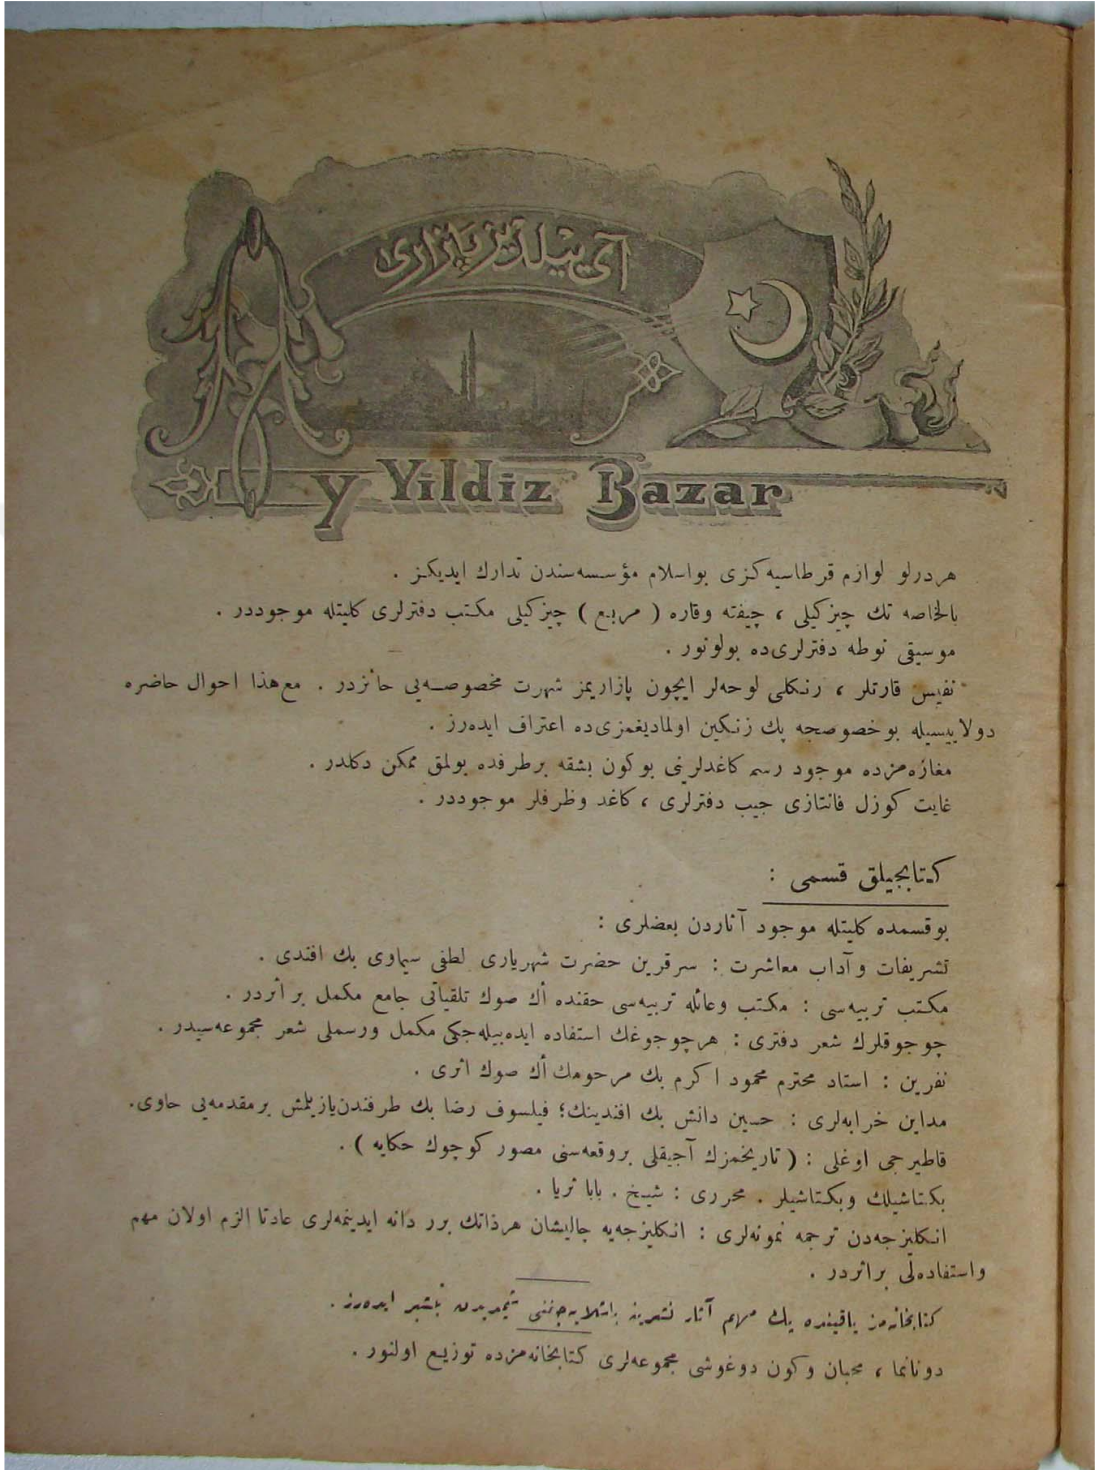 آی ییلدیز پازاری
Ay Yildiz Bazar
هردرلو لوازم قرطاسیه‌كزی بواسلام مؤسسه‌سندن تدارك ایدیكز .
بالخاصه تك چیزكیلی ، چیفته وقاره ( مربع ) چیزكیلی مكتب دفترلری كلیتله موجوددر .
موسیقی نوطه دفترلری‌ده بولونور .
نفیس قارتلر ، رنكلی لوحه‌لر ایچون پازاریمز شهرت مخصوصه‌یی حائزدر . مع‌هذا احوال حاضره
دولاییسیله بوخصوصجه پك زنكین اولمادیغمزی‌ده اعتراف ایده‌رز .
مغازه‌مزده موجود رسم كاغدلرینی بوكون بشقه برطرفده بولمق ممكن دكلدر .
غایت كوزل فانتازی جیب دفترلری ، كاغد وظرفلر موجوددر .
كتابجیلق قسمی :
بوقسمده كلیتله موجود آثاردن بعضلری :
تشریفات وآداب معاشرت : سرقرین حضرت شهریاری لطفی سیماوی بك افندی .
مكتب تربیه‌سی : مكتب وعائله تربیه‌سی حقنده اك صوك تلقیاتی جامع مكمل براثردر .
چوجوقلرك شعر دفتری : هرچوجوغك استفاده ایده‌بیله‌جكی مكمل ورسملی شعر مجموعه‌سیدر .
نفرین : استاد محترم محمود اكرم بك مرحومك اك صوك اثری .
مداین خرابه‌لری : حسین دانش بك افندینك؛ فیلسوف رضا بك طرفندن‌یازیلمش برمقدمه‌یی حاوی.
قاطیرجی اوغلی : ( تاریخمزك آجیقلی بروقعه‌سنی مصور كوچوك حكایه ) .
بكتاشیلك وبكتاشیلر . محرری : شیخ . بابا ثریا .
انكلیزجه‌دن ترجمه نمونه‌لری : انكلیزجه‌یه چالیشان هرذاتك برر دانه ایدینمه‌لری عادتا الزم اولان مهم
واستفاده‌لی براثردر .
كتابخانه‌مز یاقینده پك مهم آثار نشرینه باشلایه‌جغنی شیمدیدن تبشیر ایده‌رز .
دونانما ، محبان وكون دوغوشی مجموعه‌لری كتابخانه‌مزده توزیع اولنور .